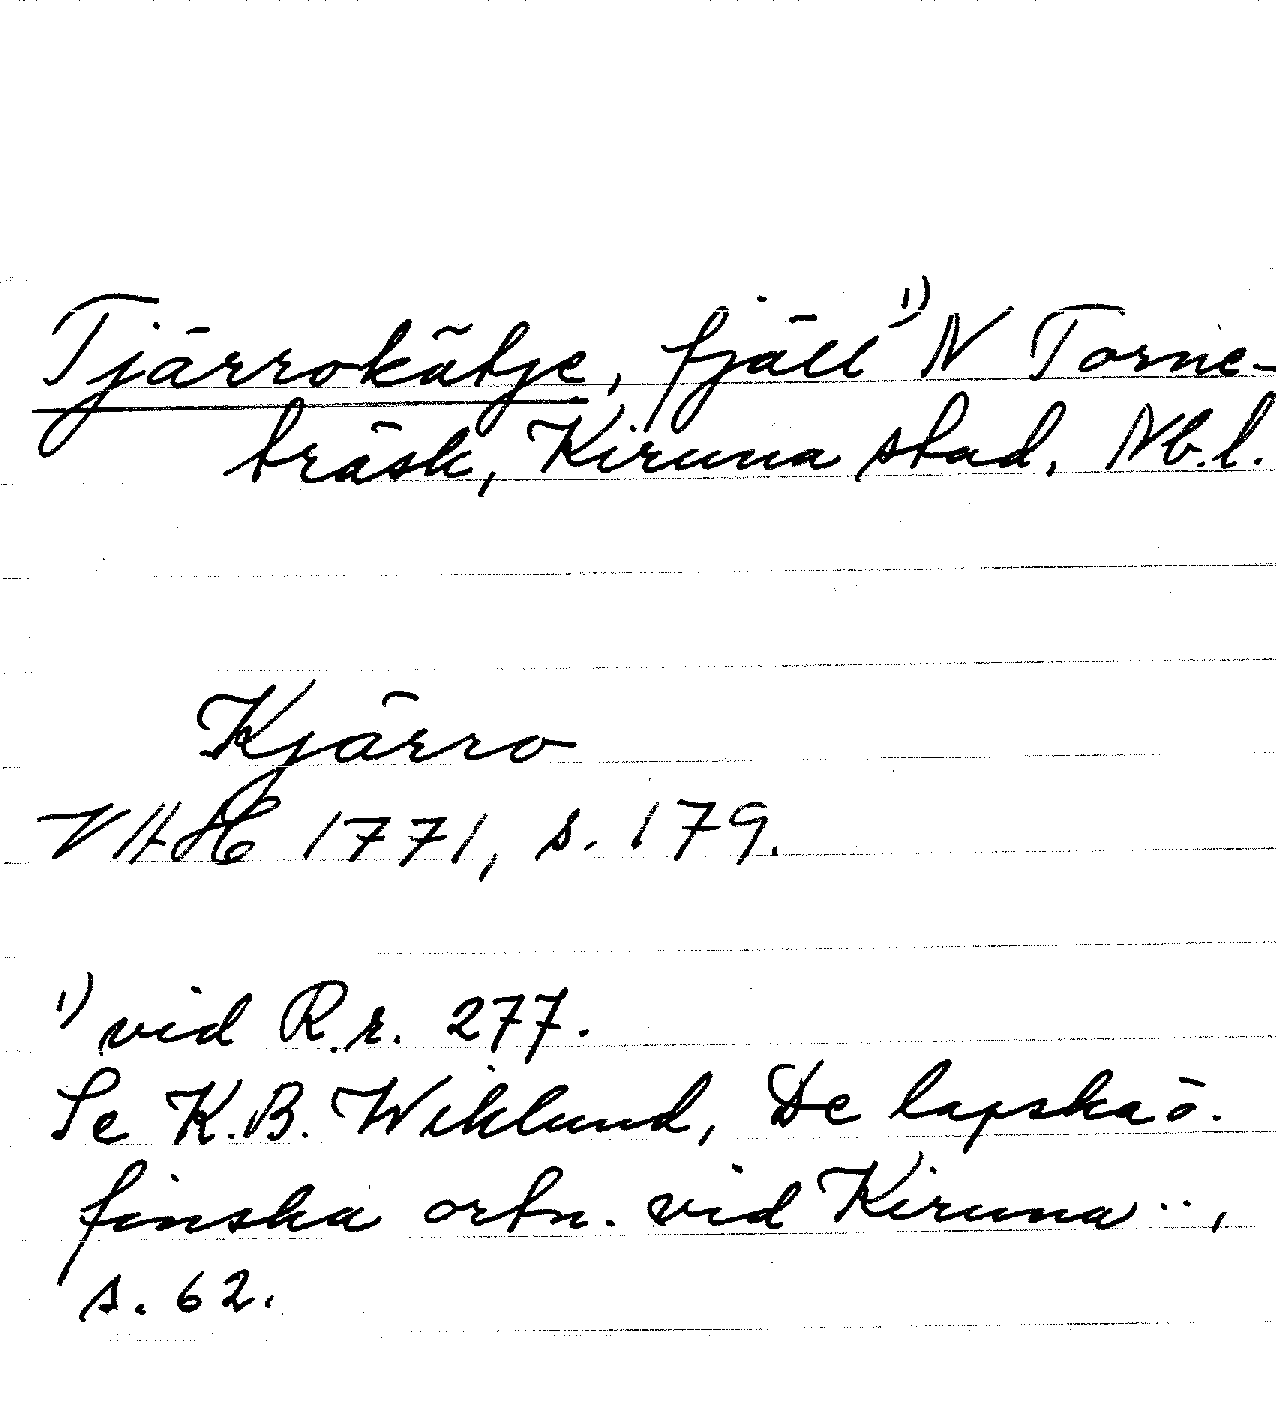 Tjärrokåtje, fjäll ¹) N Torne-
träsk, Kiruna stad. Nb.l.
Kjärro
VHAH 1771, s. 179.
¹) vid R.r. 277.
Se K.B. Wiklund, De lapska o.
finska ortn. vid Kiruna ..,
s. 62.